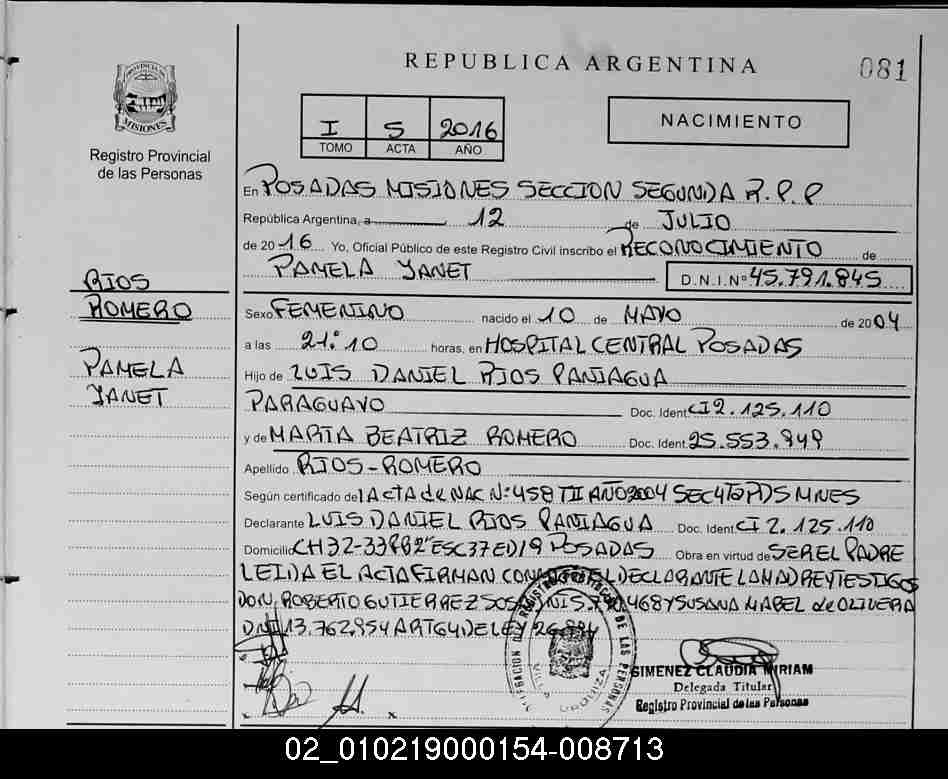 REPUBLICA ARGENTINA
081
PROVINCIA DE
MISIONES
Registro Provincial
de las Personas
I
TOMO
5
ACTA
2016
AÑO
NACIMIENTO
En POSADAS MISIONES SECCION SEGUNDA R.P.P
República Argentina, a 12 de JULIO
de 2016 Yo, Oficial Público de este Registro Civil inscribo el RECONOCIMIENTO de
PAMELA YANET D.N.I.Nº 45.791.845
RIOS
ROMERO
PAMELA
YANET
Sexo FEMENINO nacido el 10 de MAYO de 2004
a las 21:10 horas, en HOSPITAL CENTRAL POSADAS
Hijo de LUIS DANIEL RIOS PANIAGUA
PARAGUAYO Doc. Ident. CI 2.125.110
y de MARIA BEATRIZ ROMERO Doc. Ident. 25.553.949
Apellido RIOS-ROMERO
Según certificado de l ACTA de NAC Nº 458 TII AÑO 2004 SEC 4ta PDS MNES
Declarante LUIS DANIEL RIOS PANIAGUA Doc. Ident CI 2.125.110
Domicilio CH32-33 ESC 37 ED 19 POSADAS Obra en virtud de SER EL PADRE
LEIDA EL ACTA FIRMAN EL DECLARANTE LA MADRE Y TESTIGOS
DON ROBERTO GUTIERREZ SOSA 468 Y SUSANA MABEL de OLIVERA
DNI 13.762.954 ART 64 DE LEY 26.994
REGISTRO PROVINCIAL DE LAS PERSONAS
VILLA URQUIZA
GIMENEZ CLAUDIA MIRIAM
Delegada Titular
Registro Provincial de las Personas
x
02_010219000154-008713